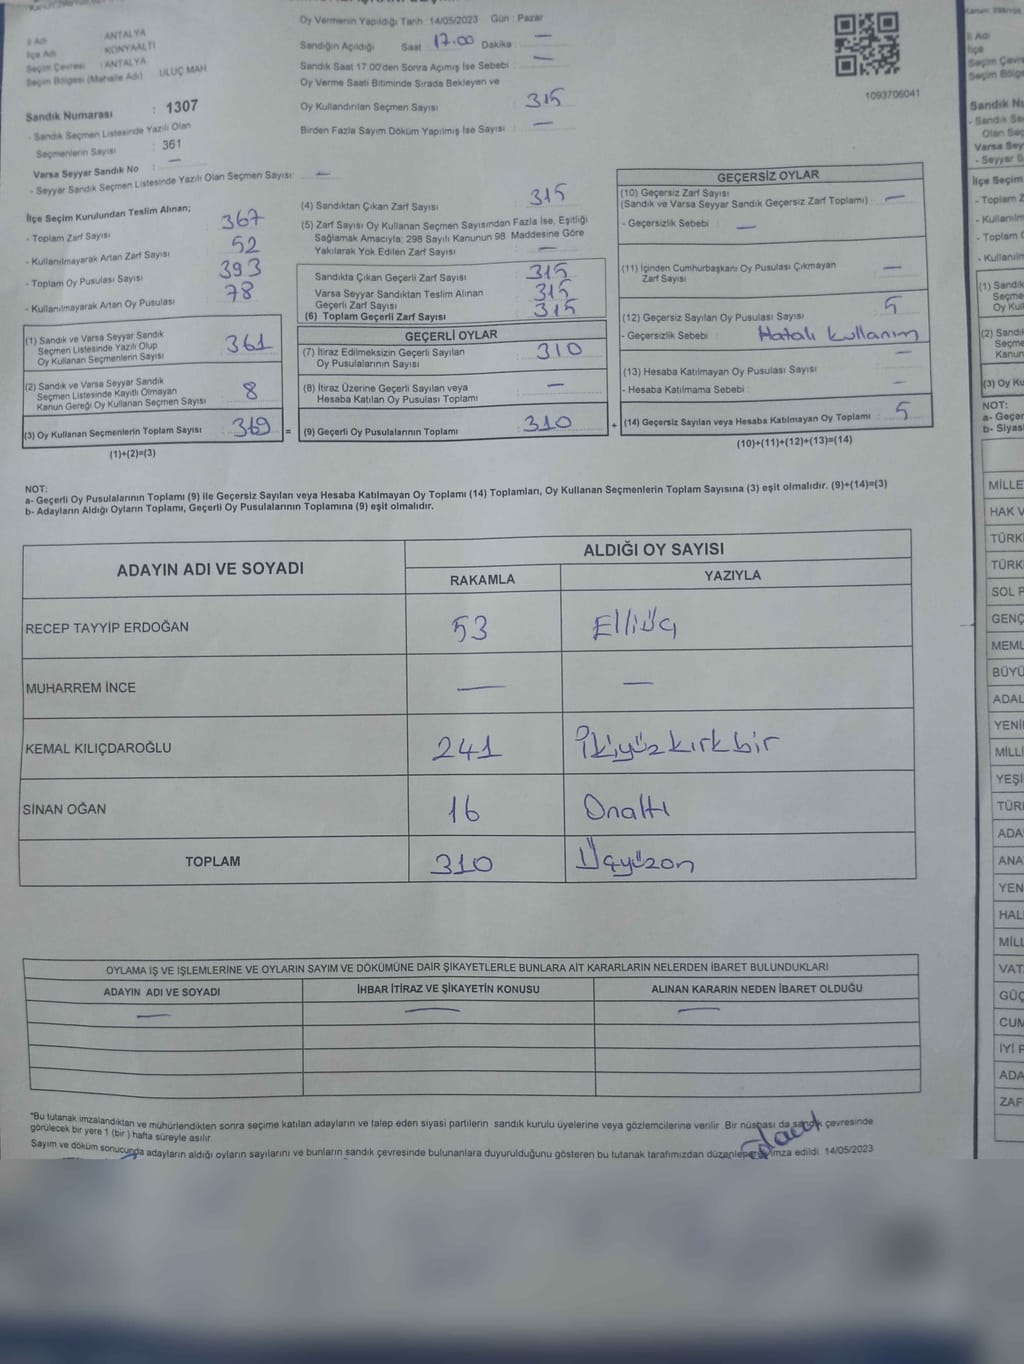 Oy Vermenin Yapıldığı Tarih :14/05/2023 Gün : Pazar
İl Adı ANTALYA
İlçe Adı KONYAALTI
Seçim Çevresi : ANTALYA
Seçim Bölgesi (Mahalle Adı) ULUÇ MAH.
Sandığın Açıldığı Saat 17.00 Dakika —
Sandık Saat 17.00'den Sonra Açılmış İse Sebebi : —
Oy Verme Saati Bitiminde Sırada Bekleyen ve
Oy Kullandırılan Seçmen Sayısı 315
Birden Fazla Sayım Döküm Yapılmış İse Sayısı : —
1093706041
Sandık Numarası : 1307
- Sandık Seçmen Listesinde Yazılı Olan
Seçmenlerin Sayısı : 361
Varsa Seyyar Sandık No : —
- Seyyar Sandık Seçmen Listesinde Yazılı Olan Seçmen Sayısı: —
İlçe Seçim Kurulundan Teslim Alınan;
- Toplam Zarf Sayısı 367
- Kullanılmayarak Artan Zarf Sayısı 52
- Toplam Oy Pusulası Sayısı 393
- Kullanılmayarak Artan Oy Pusulası 78
(1) Sandık ve Varsa Seyyar Sandık
Seçmen Listesinde Yazılı Olup
Oy Kullanan Seçmenlerin Sayısı 361
(2) Sandık ve Varsa Seyyar Sandık
Seçmen Listesinde Kayıtlı Olmayan
Kanun Gereği Oy Kullanan Seçmen Sayısı 8
(3) Oy Kullanan Seçmenlerin Toplam Sayısı 369 =
(1)+(2)=(3)
(4) Sandıktan Çıkan Zarf Sayısı 315
(5) Zarf Sayısı Oy Kullanan Seçmen Sayısından Fazla İse, Eşitliği
Sağlamak Amacıyla; 298 Sayılı Kanunun 98. Maddesine Göre
Yakılarak Yok Edilen Zarf Sayısı : —
Sandıkta Çıkan Geçerli Zarf Sayısı 315
Varsa Seyyar Sandıktan Teslim Alınan
Geçerli Zarf Sayısı 315
(6) Toplam Geçerli Zarf Sayısı 315
GEÇERLİ OYLAR
(7) İtiraz Edilmeksizin Geçerli Sayılan
Oy Pusulalarının Sayısı : 310
(8) İtiraz Üzerine Geçerli Sayılan veya
Hesaba Katılan Oy Pusulası Toplamı : —
(9) Geçerli Oy Pusulalarının Toplamı : 310 +
GEÇERSİZ OYLAR
(10) Geçersiz Zarf Sayısı
(Sandık ve Varsa Seyyar Sandık Geçersiz Zarf Toplamı) : —
- Geçersizlik Sebebi : —
(11) İçinden Cumhurbaşkanı Oy Pusulası Çıkmayan
Zarf Sayısı : —
(12) Geçersiz Sayılan Oy Pusulası Sayısı : 5
- Geçersizlik Sebebi : Hatalı kullanım
(13) Hesaba Katılmayan Oy Pusulası Sayısı —
- Hesaba Katılmama Sebebi : —
(14) Geçersiz Sayılan veya Hesaba Katılmayan Oy Toplamı : 5
(10)+(11)+(12)+(13)=(14)
NOT:
a- Geçerli Oy Pusulalarının Toplamı (9) ile Geçersiz Sayılan veya Hesaba Katılmayan Oy Toplamı (14) Toplamları, Oy Kullanan Seçmenlerin Toplam Sayısına (3) eşit olmalıdır. (9)+(14)=(3)
b- Adayların Aldığı Oyların Toplamı, Geçerli Oy Pusulalarının Toplamına (9) eşit olmalıdır.
ADAYIN ADI VE SOYADI ALDIĞI OY SAYISI
RAKAMLA YAZIYLA
RECEP TAYYİP ERDOĞAN 53 Elliüç
MUHARREM İNCE — —
KEMAL KILIÇDAROĞLU 241 İkiyüzkırkbir
SİNAN OĞAN 16 Onaltı
TOPLAM 310 Üçyüzon
OYLAMA İŞ VE İŞLEMLERİNE VE OYLARIN SAYIM VE DÖKÜMÜNE DAİR ŞİKAYETLERLE BUNLARA AİT KARARLARIN NELERDEN İBARET BULUNDUKLARI
ADAYIN ADI VE SOYADI İHBAR İTİRAZ VE ŞİKAYETİN KONUSU ALINAN KARARIN NEDEN İBARET OLDUĞU
— — —
*Bu tutanak imzalandıktan ve mühürlendikten sonra seçime katılan adayların ve talep eden siyasi partilerin sandık kurulu üyelerine veya gözlemcilerine verilir. Bir nüshası da sandık çevresinde
görülecek bir yere 1 (bir) hafta süreyle asılır.
Sayım ve döküm sonucunda adayların aldığı oyların sayılarını ve bunların sandık çevresinde bulunanlara duyurulduğunu gösteren bu tutanak tarafımızdan düzenlenerek imza edildi. 14/05/2023
İl Adı
İlçe
Seçim Çevre
Seçim Bölge
Sandık Nu
- Sandık Se
Olan Seç
Varsa Sey
- Seyyar S
İlçe Seçim
- Toplam Z
- Kullanılm
- Toplam O
- Kullanılm
(1) Sandık
Seçme
Oy Kul
(2) Sandı
Seçme
Kanun
(3) Oy Ku
NOT:
a- Geçer
b- Siyas
MİLLE
HAK V
TÜRK
TÜRK
SOL P
GENÇ
MEML
BÜYÜ
ADAL
YENİ
MİLLİ
YEŞİ
TÜRİ
ADA
ANA
YEN
HAL
MİLL
VAT
GÜÇ
CUM
İYİ P
ADA
ZAF